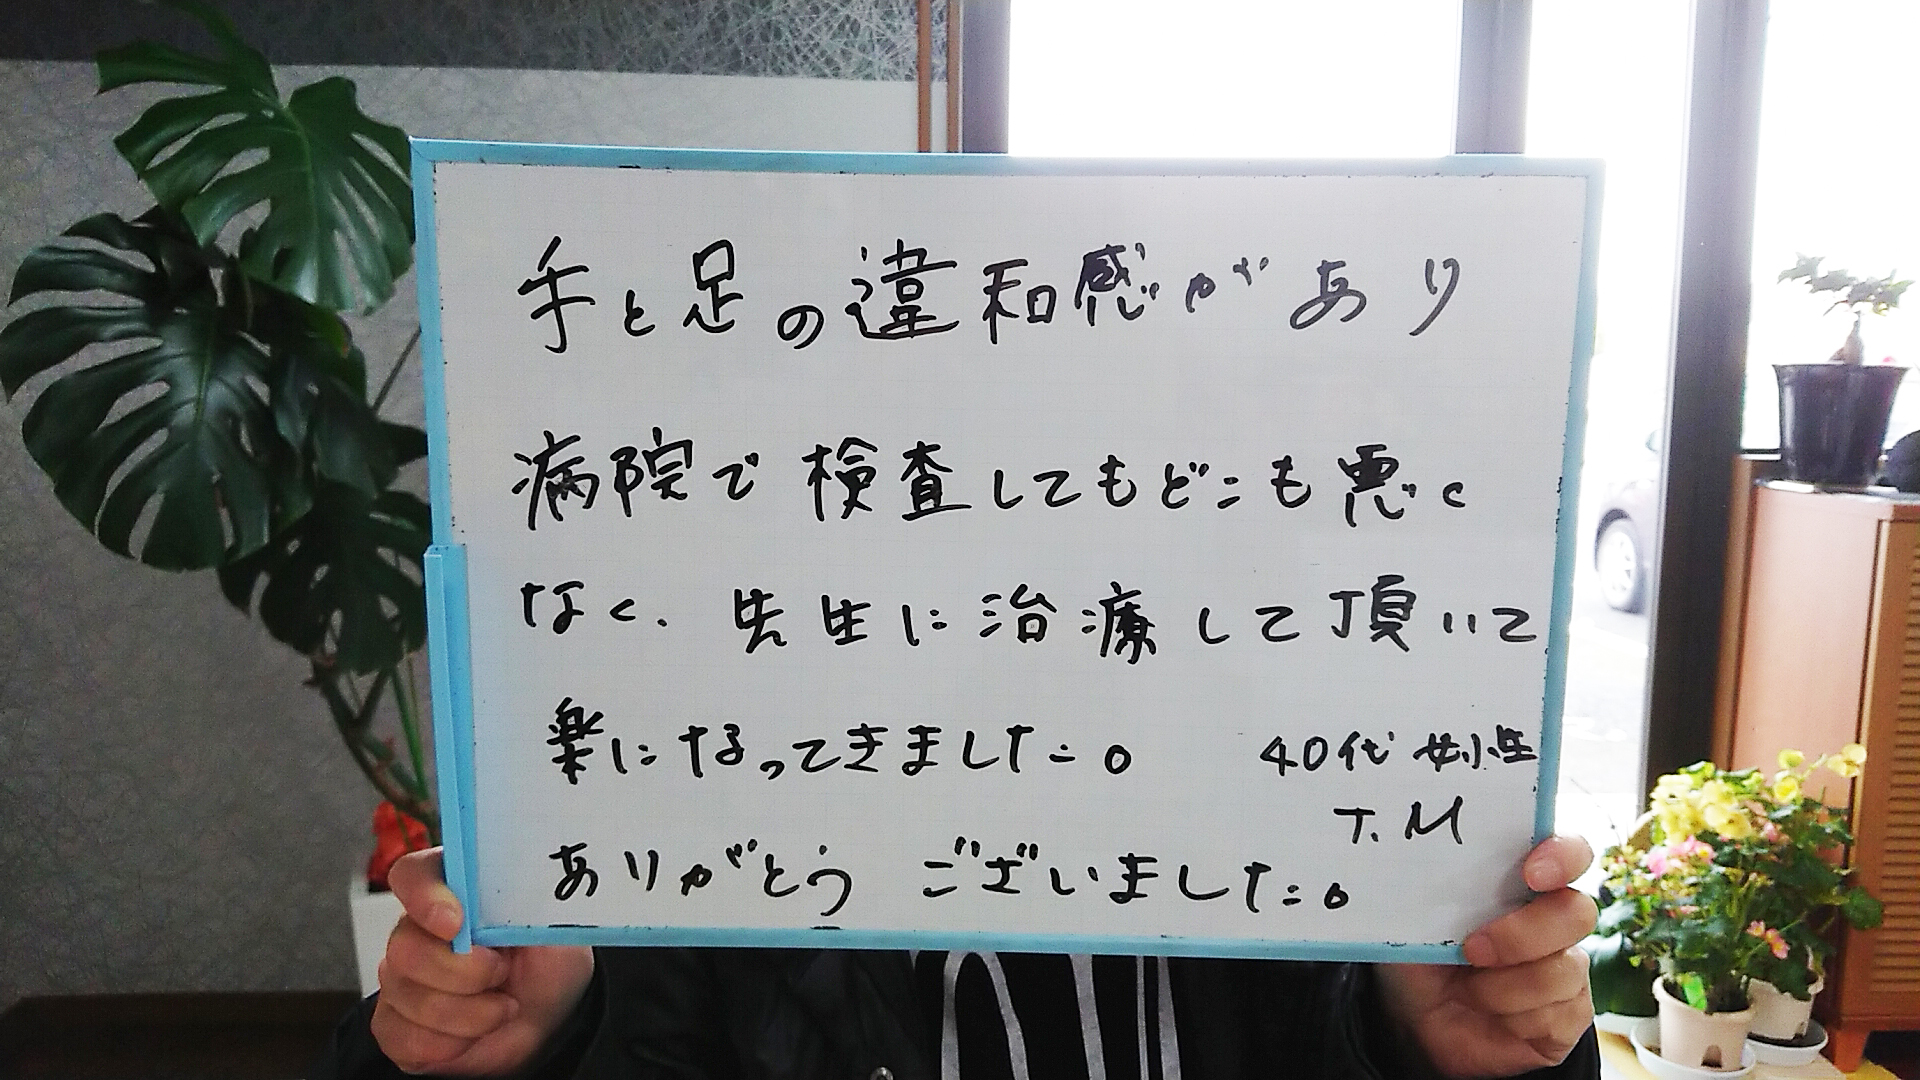 手と足の違和感があり
病院で検査してもどこも悪く
なく、先生に治療して頂いて
楽になってきました。
40代 女性
T.M
ありがとうございました。